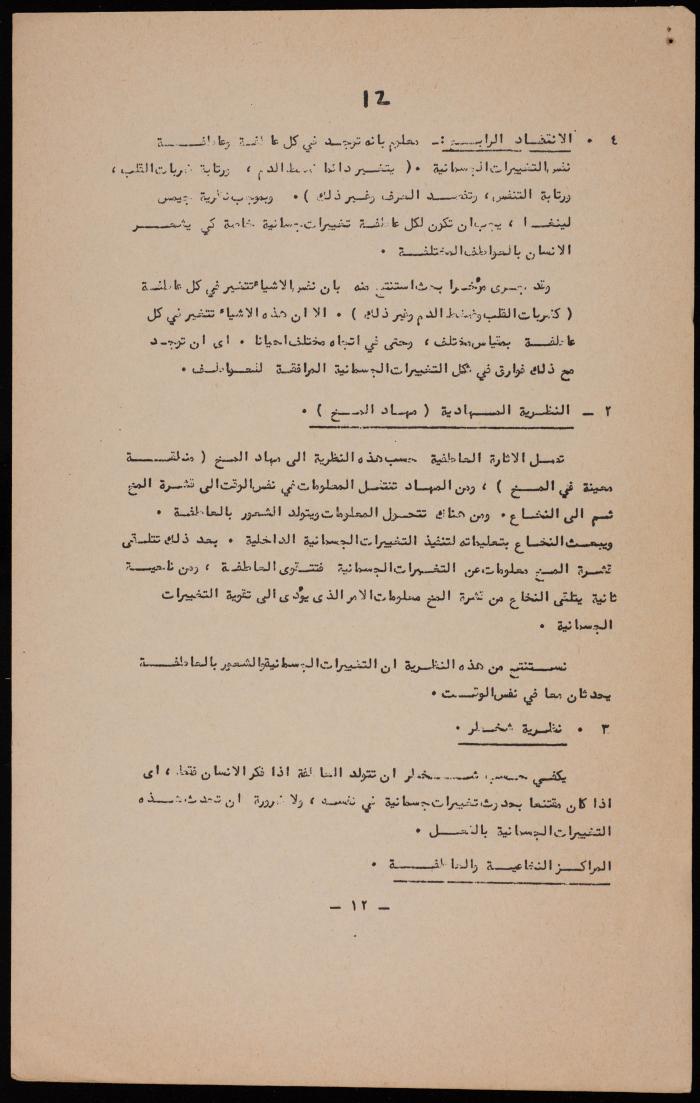 12
٤ • الانتقاد الرابع :- معلوم بانه توجد في كل عاطفة وعاطفة
نفس التغييرات الجسمانية • ( يتغير دائما ضغط الدم ، ورتابة ضربات القلب ،
ورتابة التنفس ، وتفصد العرق وغير ذلك ) • وبموجب نظرية جيمس
لينغا ، يجب ان تكون لكل عاطفة تغييرات جسمانية خاصة كي يشعر
الانسان بالعواطف المختلفة •
وقد جرى مؤخرا بحث استنتج منه بان نفس الاشياء تتغير في كل عاطفة
( كضربات القلب وضغط الدم وغير ذلك ) • الا ان هذه الاشياء تتغير في كل
عاطفة بمقياس مختلف ، وحتى في اتجاه مختلف احيانا • اى ان توجد
مع ذلك فوارق في شكل التغييرات الجسمانية المرافقة للعواطف •
٢ - النظرية المهادية ( مهاد المخ ) •
تصل الاثارة العاطفية حسب هذه النظرية الى مهاد المخ ( منطقة
معينة في المخ ) ، ومن المهاد تنتقل المعلومات في نفس الوقت الى قشرة المخ
ثم الى النخاع • ومن هناك تتحول المعلومات ويتولد الشعور بالعاطفة •
ويبعث النخاع بتعليماته لتنفيذ التغييرات الجسمانية الداخلية • بعد ذلك تتلقى
قشرة المخ معلومات عن التغييرات الجسمانية فتتقوى العاطفة ، ومن ناحية
ثانية يتلقى النخاع من قشرة المخ معلومات الامر الذى يؤدى الى تقوية التغييرات
الجسمانية •
نستنتج من هذه النظرية ان التغييرات الجسمانية والشعور بالعاطفة
يحدثان معا في نفس الوقت •
٣ • نظرية شخطر •
يكفي حسب شخطر ان تتولد العاطفة اذا فكر الانسان فقط ، اى
اذا كان مقتنعا بحدوث تغييرات جسمانية في نفسه ، ولا ضرورة ان تحدث هذه
التغييرات الجسمانية بالفعل •
المراكز النخاعية والعاطفة •
- ١٢ -